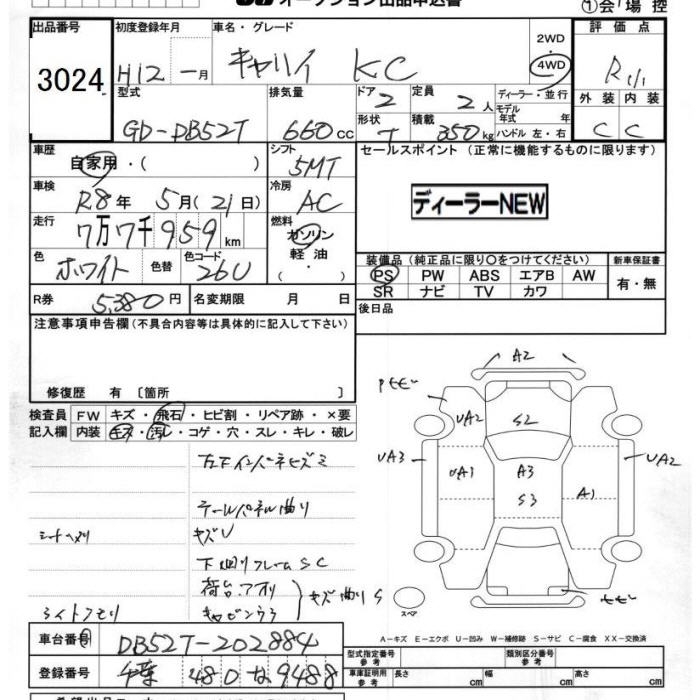 オークション出品申込書
①会場控
出品番号 初度登録年月 車名・グレード 2WD 評価点
3024 H12 年 一月 キャリイ KC 4WD R1/1
型式 排気量 ドア 定員 ディーラー・並行 外装 内装
2 2人 モデル年式 年
GD-DB52T 660cc 形状 T 積載 350kg ハンドル 左・右 C C
車歴 シフト セールスポイント(正常に機能するものに限ります)
自家用・( ) 5MT
車検 冷房
R8年 5月(21日) AC ディーラーNEW
走行 燃料
7万7千959km ガソリン
色 色替 色コード 軽油 装備品(純正品に限り○をつけてください) 新車保証書
ホワイト 26U ・ PS PW ABS エアB AW 有・無
R券 5,380円 名変期限 月 日 SR ナビ TV カワ
注意事項申告欄(不具合内容等は具体的に記入して下さい) 後日品
修復歴 有〔箇所 〕
検査員 FW キズ・飛石・ヒビ割・リペア跡・×要
記入欄 内装 キズ・汚レ・コゲ・穴・スレ・キレ・破レ
A2
UA2 S2
UA3 UA1 A3 UA2
S3 A1
テールパネル曲り
シートヘタリ キズU
下廻りフレームSC
荷台.アオリ
キズ曲りS
スペア
A-キズ E-エクボ U-凹み W-補修跡 S-サビ C-腐食 XX-交換済
車台番号 DB52T-202884 型式指定番号 参考 類別区分番号 参考
登録番号 千葉 480 な 9488 車庫証明用 参考 長さ cm 幅 cm 高さ cm